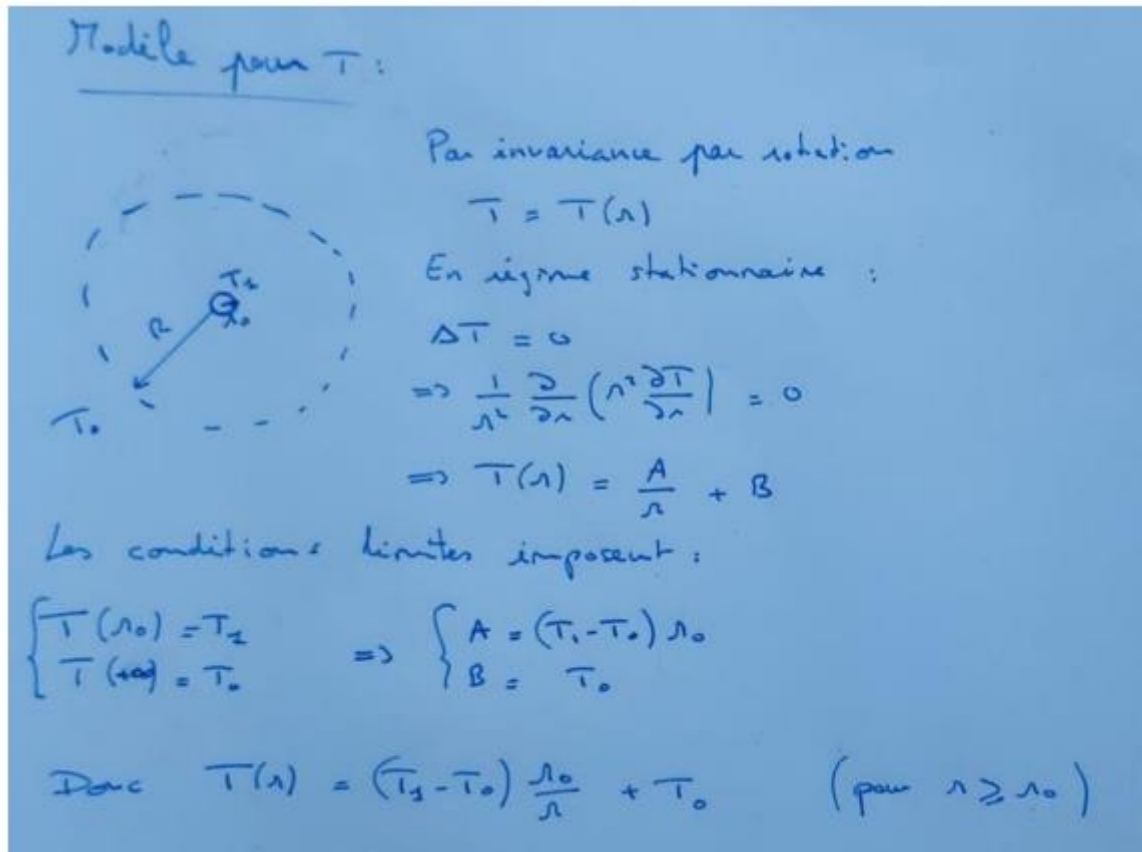 Modèle pour T :
Par invariance par rotation
T = T(r)
En régime stationnaire :
T₁
r₀
R
T₀
ΔT = 0
=> 1/r² ∂/∂r (r² ∂T/∂r) = 0
=> T(r) = A/r + B
Les conditions limites imposent :
{ T(r₀) = T₁ => { A = (T₁ - T₀) r₀
T(+∞) = T₀ B = T₀
Donc T(r) = (T₁ - T₀) r₀/r + T₀ (pour r ≥ r₀)